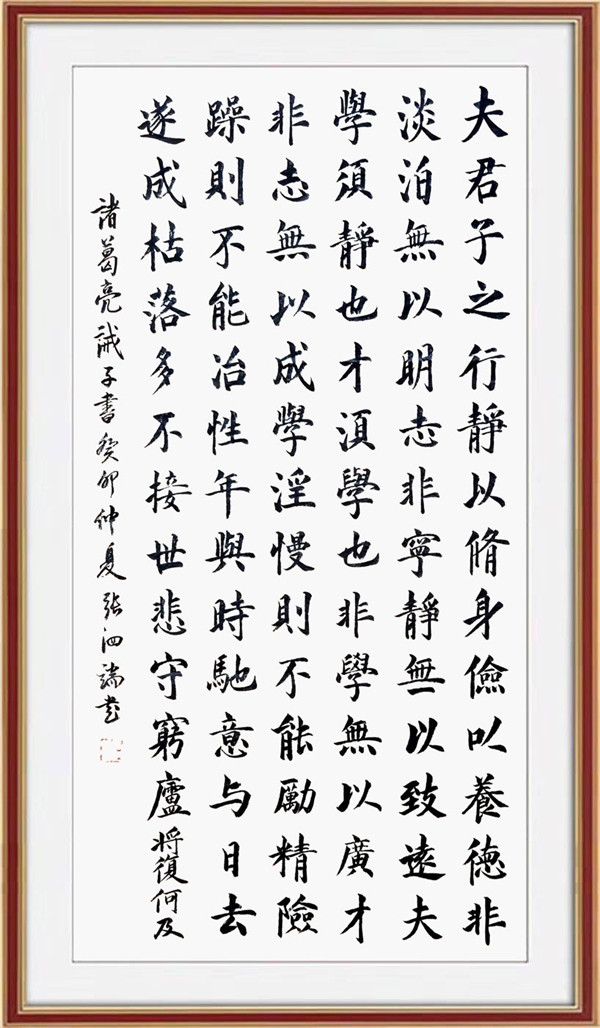 夫君子之行靜以脩身儉以養德非
淡泊無以明志非寧靜無以致遠夫
學須靜也才須學也非學無以廣才
非志無以成學淫慢則不能勵精險
躁則不能冶性年與時馳意与日去
遂成枯落多不接世悲守窮廬將復何及
諸葛亮誡子書癸卯仲夏張泗端書